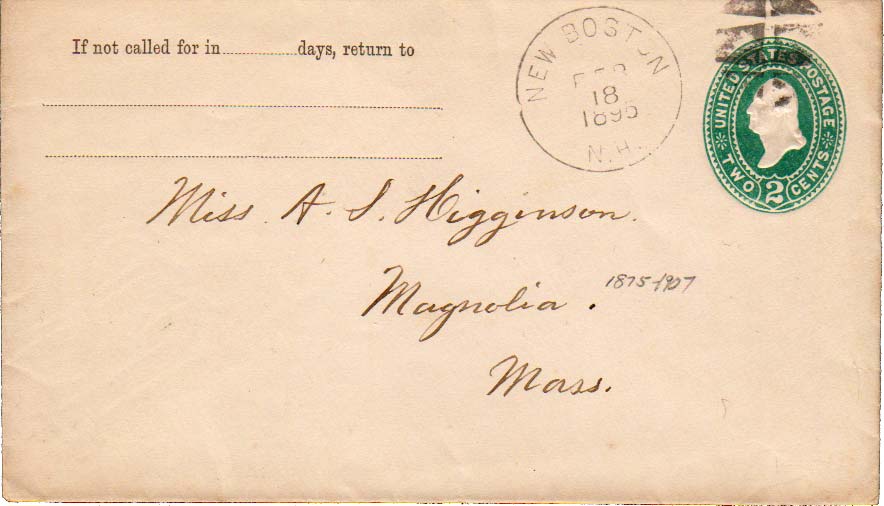 If not called for in..............days, return to
NEW BOSTON
FEB
18
1895
N.H.
UNITED STATES POSTAGE
TWO 2 CENTS
Miss A. S. Higginson.
Magnolia.
1875-1907
Mass.